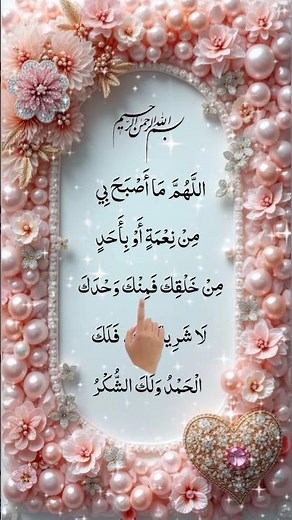 بسم الله الرحمن الرحيم
اللَّهُمَّ مَا أَصْبَحَ بِي
مِنْ نِعْمَةٍ أَوْ بِأَحَدٍ
مِنْ خَلْقِكَ فَمِنْكَ وَحْدَكَ
لَا فَلَكَ
الْحَمْدُ وَلَكَ الشُّكْرُ